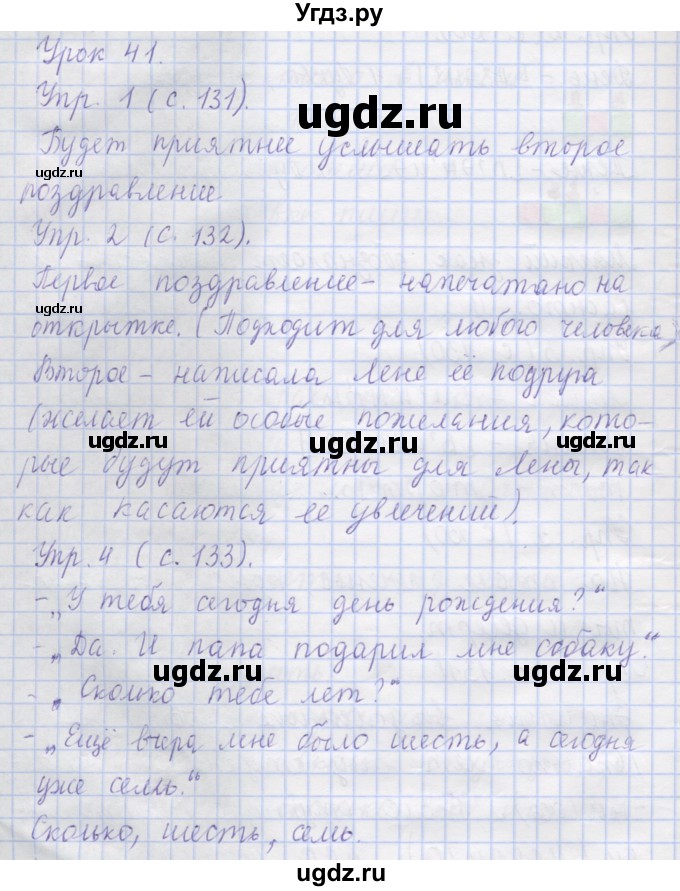 Угдз.ру
Урок 41.
Упр. 1 (с. 131).
ugdz.ru
ugdz.ru
Будет приятнее услышать второе
поздравление
ugdz.ru
Упр. 2 (с. 132).
Первое поздравление - напечатано на
ugdz.ru
открытке. (Подходит для любого человека)
ugdz.ru
Второе - написала Лене её подруга
(желает ей особые пожелания, кото-
ugdz.ru
ugdz.ru
рые будут приятны для Лены, так
как касаются её увлечений).
ugdz.ru
Упр. 4 (с. 133).
- „У тебя сегодня день рождения?“
- „Да. И папа подарил мне собаку.“
ugdz.ru
ugdz.ru
- „Сколько тебе лет?“
- „Ещё вчера мне было шесть, а сегодня
ugdz.ru
уже семь.“
Сколько, шесть, семь.
ugdz.ru